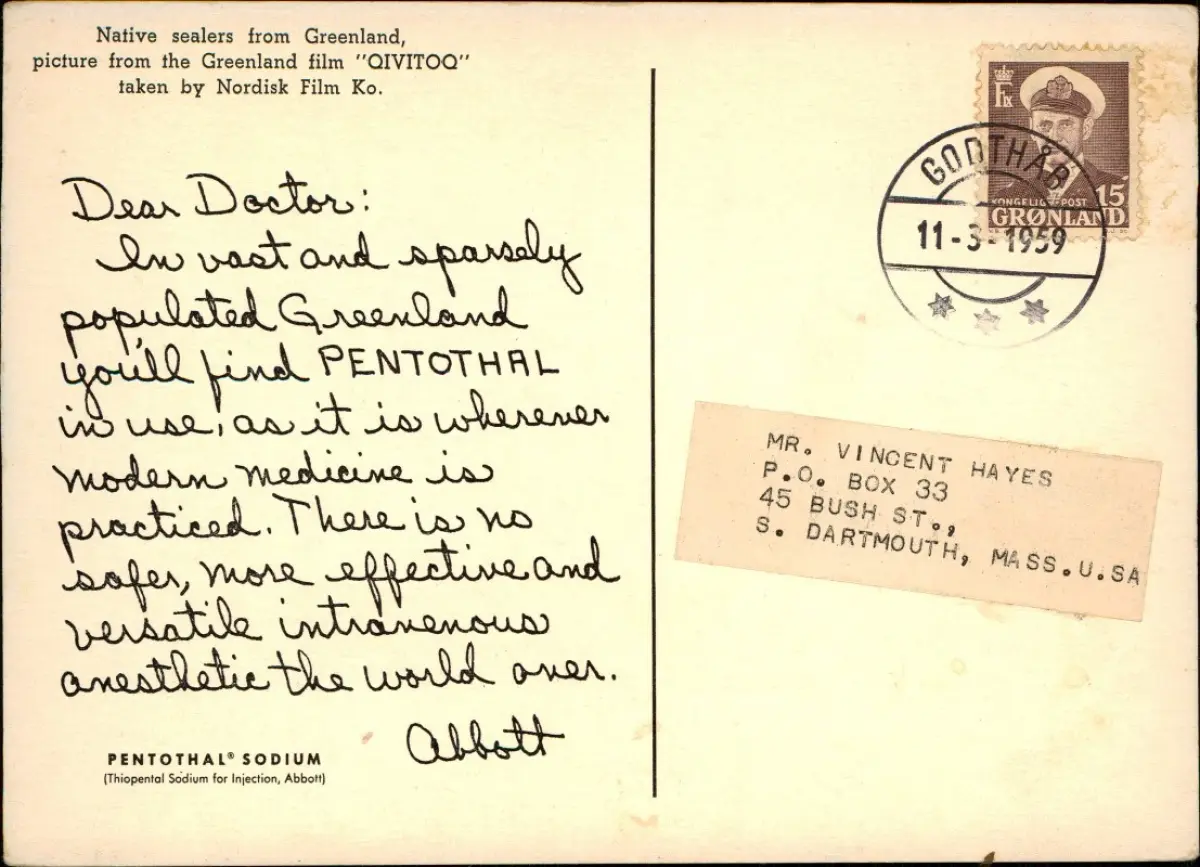 Native sealers from Greenland,
picture from the Greenland film "QIVITOQ"
taken by Nordisk Film Ko.
Dear Doctor:
In vast and sparsely
populated Greenland
you'll find PENTOTHAL
in use, as it is wherever
modern medicine is
practiced. There is no
safer, more effective and
versatile intravenous
anesthetic the world over.
Abbott
PENTOTHAL® SODIUM
(Thiopental Sodium for Injection, Abbott)
GODTHÅB
11-3-1959
KONGELIG POST
15
GRØNLAND
MR. VINCENT HAYES
P.O. BOX 33
45 BUSH ST.,
S. DARTMOUTH, MASS.U.SA